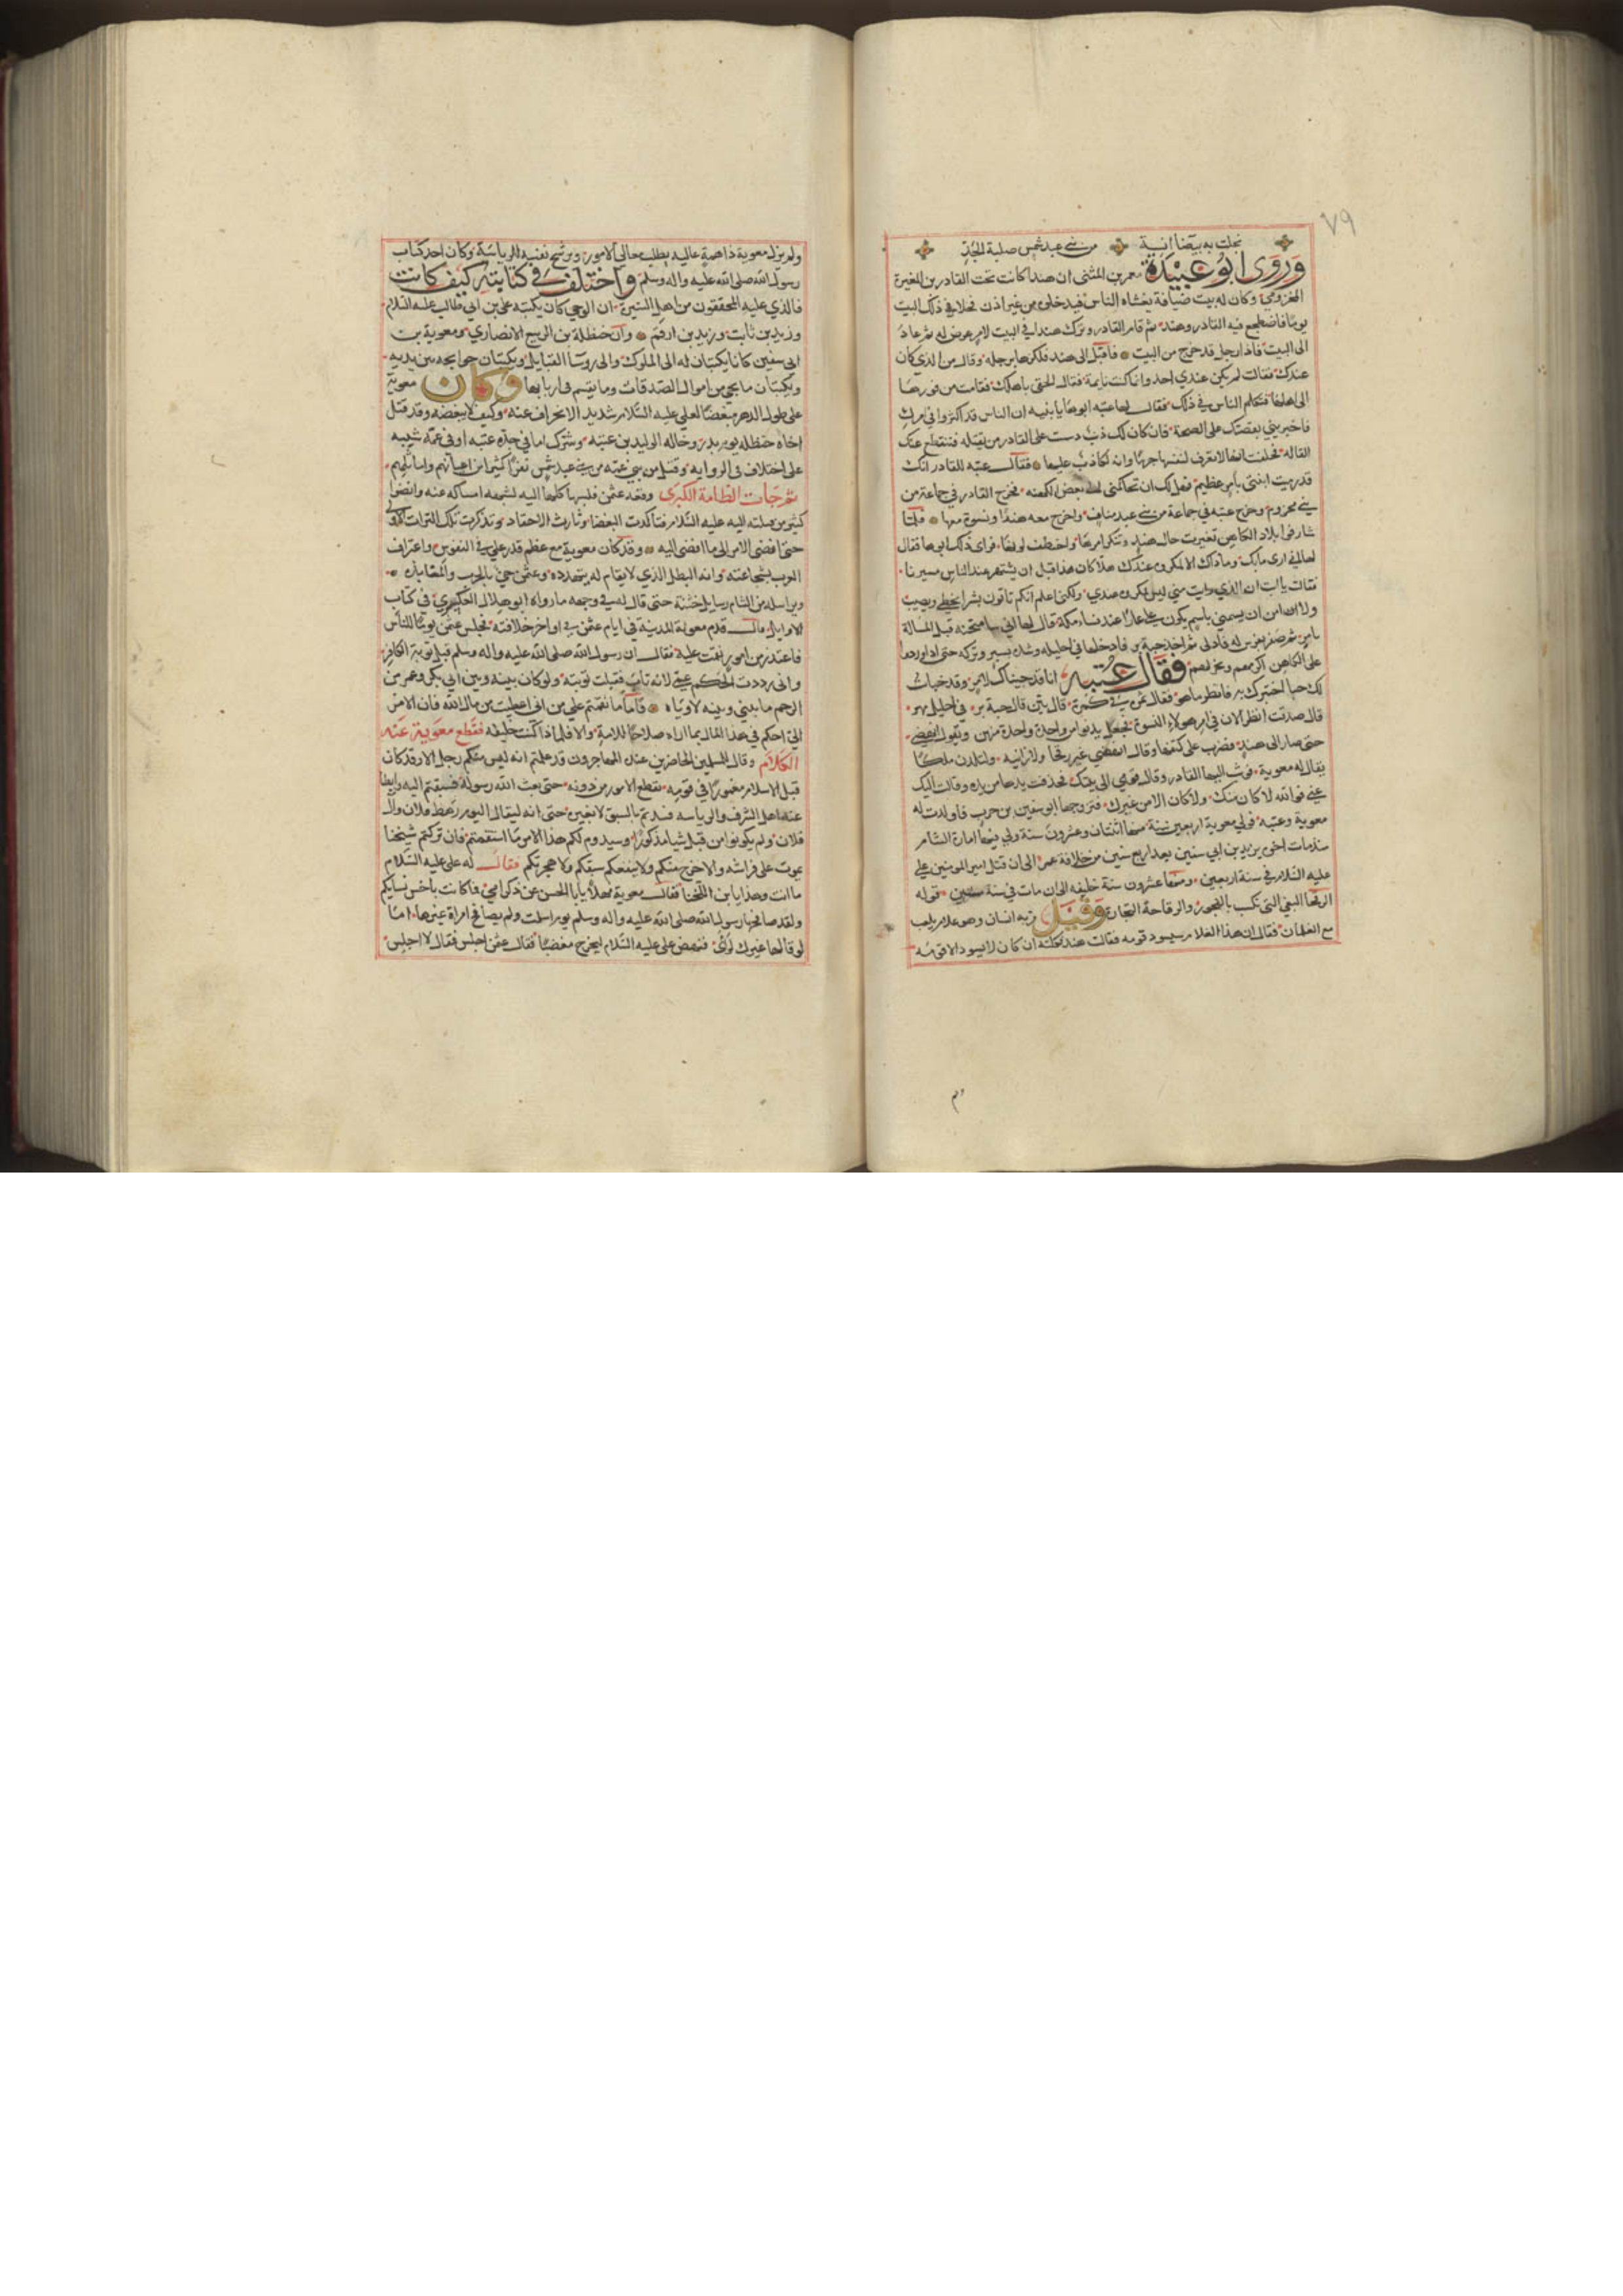 ٧٩
نجلت به بيضا آنسة من بني عبد شمس صلبة الخد
وروى ابو عبيدة معمر بن المثنى ان هندا كانت تحت الفاكه بن المغيرة
المخزومي وكان له بيت ضيافة يغشاه الناس فيدخلونه من غير اذن فخلا في ذلك البيت
يوما فاضطجع فيه القادر وهند ثم قام القادر وترك هندا في البيت لامر عرض له ثم عاد
الى البيت فاذا رجل قد خرج من البيت فاقبل الى هند فلكزها برجله وقال من الذي كان
عندك فقالت لم يكن عندي احد وانما كنت نايمة فقال الحقي باهلك فقامت من فورها
الى اهلها فتكلم الناس في ذلك فقال لها عتبه ابوها يا بنيه ان الناس قد اكثروا في امرك
فاخبريني بقصتك على الصحة فان كان لك ذنب دسست على القادر من يقتله فتنقطع عنك
القاله فحلفت انها لا تعرف لنفسها جرما وانه لكاذب عليها فقال عتبه للقادر انك
قد رميت ابنتي بامر عظيم فهل لك ان تحاكمني الى بعض الكهنه فخرج القادر في جماعة من
بني مخزوم وخرج عتبه في جماعة من بني عبد مناف واخرج معه هندا ونسوة معها فلما
شارفوا بلاد الكاهن تغيرت حال هند وتنكر امرها واختطف لونها فراى ذلك ابوها فقال
لها اني ارى ما بك وما ذاك الا لمكروه عندك هلا كان هذا قبل ان يشتهر عند الناس مسيرنا
فقالت يا ابت ان الذي رايت مني ليس لمكروه عندي ولكني اعلم انكم تاتون بشرا يخطي ويصيب
ولا امن ان يسمني باسم يكون علي عارا عند نساء مكة قال لها اني سامتحنه قبل المسالة
بامر ثم صفر بفرس له فادلى ثم اخذ حبة بر فادخلها في احليله وشده بسير وتركه حتى اذا وردوا
على الكاهن اكرمهم ونحر لهم فقال عتبة انا قد جيناك لامر وقد خبات
لك خبا اختبرك به فانظر ما هو فقال ثمرة في كمرة قال بين قال حبة بر في احليل مهر
قال صدقت انظر الان في امر هولاء النسوة فجعل يدنو من واحدة واحدة منهن ويقول انهضي
حتى صار الى هند فضرب على كتفها وقال انهضي غير رقحا ولا زانيه ولتلدن ملكا
يقال له معوية فوثب اليها القادر وقال قومي الى بيتك فجذبت يدها من يده وقالت اليك
عني فوالله لا كان منك ولا كان الا من غيرك فتزوجها ابو سفين بن حرب فاولدت له
معوية وعتبه فولي معوية اربعين سنة منها اثنتان وعشرون سنة ولي فيها امارة الشام
منذ مات اخوه يزيد بن ابي سفين بعد اربع سنين من خلافة عمر الى ان قتل امير المومنين علي
عليه السلام في سنة اربعين ومنها عشرون سنة خليفه الى ان مات في سنة ستين قوله
الرقحا البغي التي تكسب بالفجور والرقاحة التجارة وقيل نزبه انسان وهو غلام يلعب
مع الغلمان فقال ان هذا الغلام سيسود قومه فقالت هند ثكلته ان كان لا يسود الا قومه
ولم يزل معوية ذا همة عاليه يطلب معالي الامور ويرشح نفسه للرياسة وكان احد كتاب
رسول الله صلى الله عليه واله وسلم واختلف في كتابته كيف كانت
فالذي عليه المحققون من اهل السيرة ان الوحي كان يكتبه علي بن ابي طالب عليه السلام
وزيد بن ثابت وزيد بن ارقم وان حنظلة بن الربيع الانصاري ومعوية بن
ابي سفين كانا يكتبان له الى الملوك والى روسا القبايل ويكتبان حوايجه بين يديه
ويكتبان ما يجي من اموال الصدقات وما يقسم في اربابها وكان معوية
على طول الدهر مبغضا لعلي عليه السلام شديد الانحراف عنه وكيف لا يبغضه وقد قتل
اخاه حنظله يوم بدر وخاله الوليد بن عتبه وشرك اما في جده عتبه او في عمه شيبه
على اختلاف في الروايه وقتل من بني عمه من بني عبد شمس نفرا كثيرا من اعيانهم واماثلهم
ثم جات الطامة الكبرى وقعد عثمن فلبسها كلها اليه لشبهه امساكه عنه وانضوا
كثير من قتلته اليه عليه السلام فتاكدت البغضا وثارت الاحقاد وتذكرت تلك الترات الاولى
حتى افضى الامر الى ما افضى اليه وقد كان معوية مع عظم قدر علي في النفوس واعتراف
العرب بشجاعته وانه البطل الذي لا يقام له يتهدده وعثمن حي بالحرب والمقابله
ويراسله من الشام رسايل خشنة حتى قال له في وجهه ما رواه ابو هلال العسكري في كتاب
الاوايل قال قدم معوية المدينة في ايام عثمن في اواخر خلافته فجلس عثمن يوما للناس
فاعتذر من امور نقمت عليه فقال ان رسول الله صلى الله عليه واله وسلم قبل توبة الكافر
واني رددت الحكم عمي لانه تاب فقبلت توبته ولو كان بينه وبين ابي بكر وعمر من
الرحم ما بيني وبينه لاوياه فاما ما نقمتم علي من اني اعطيت من مال الله فان الامر
الي احكم في هذا المال بما اراه صلاحا للامة والا فلماذا كنت خليفه فقطع معوية عنه
الكلام وقال للمسلمين الحاضرين عنده المهاجرون قد علمتم انه ليس منكم رجل الا وقد كان
قبل الاسلام مغمورا في قومه تقطع الامور من دونه حتى بعث الله رسوله فسبقتم اليه وابطا
عنه اهل الشرف والرياسه فسدتم بالسبق لا بغيره حتى انه ليقال اليوم رهط فلان وال
فلان ولم يكونوا من قبل شيا مذكورا وسيدوم لكم هذا الامر ما استقمتم فان تركتم شيخنا
يموت على فراشه والا خرج منكم ولا ينفعكم سبقكم ولا هجرتكم فقال له علي عليه السلام
ما انت وهذا يا ابن اللخنا فقال معوية مهلا يا ابا الحسن عن ذكر امي فما كانت باخس نسايكم
ولقد صافحها رسول الله صلى الله عليه واله وسلم يوم اسلمت ولم يصافح امراة غيرها اما
لو قالها غيرك فنهض علي عليه السلام ليخرج مغضبا فقال عثمن اجلس فقال لا اجلس